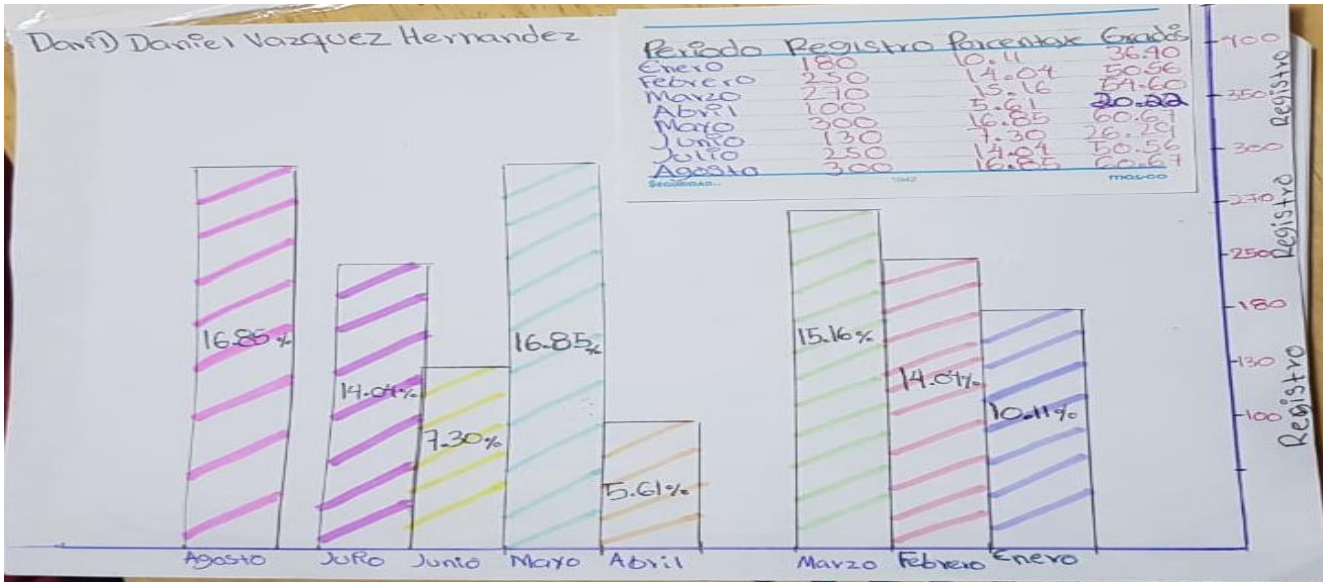 DaviD Daniel Vazquez Hernandez
Periodo Registro Porcentaje Grados
Enero 180 10.11 36.40
Febrero 250 14.04 50.56
Marzo 270 15.16 54.60
Abril 100 5.61 20.22
Mayo 300 16.85 60.67
Junio 130 7.30 26.29
Julio 250 14.04 50.56
Agosto 300 16.85 60.67
400
350
300
270
2500
180
130
100
Registro
Registro
Registro
16.85%
14.04%
7.30%
16.85%
5.61%
15.16%
14.04%
10.11%
Agosto Julio Junio Mayo Abril Marzo Febrero Enero